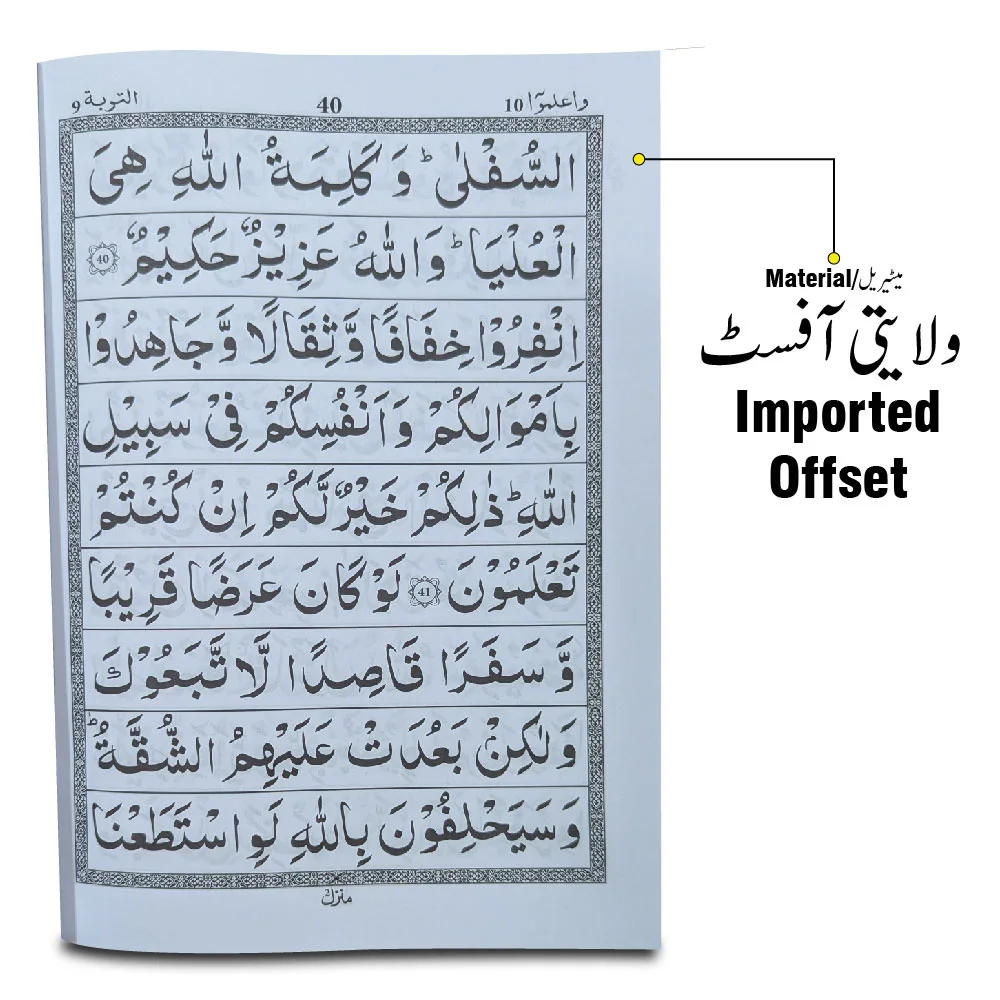 واعلموٓا 10
40
التوبة 9
السُّفْلٰىؕ وَ كَلِمَةُ اللّٰهِ هِیَ
الْعُلْیَاؕ وَاللّٰهُ عَزِیْزٌ حَكِیْمٌ 40
اِنْفِرُوْا خِفَافًا وَّ ثِقَالًا وَّ جَاهِدُوْا
بِاَمْوَالِكُمْ وَ اَنْفُسِكُمْ فِیْ سَبِیْلِ
اللّٰهِؕ ذٰلِكُمْ خَیْرٌ لَّكُمْ اِنْ كُنْتُمْ
تَعْلَمُوْنَ 41 لَوْ كَانَ عَرَضًا قَرِیْبًا
وَّ سَفَرًا قَاصِدًا لَّا تَّبَعُوْكَ
وَ لٰكِنْۢ بَعُدَتْ عَلَیْهِمُ الشُّقَّةُؕ
وَ سَیَحْلِفُوْنَ بِاللّٰهِ لَوِ اسْتَطَعْنَا
منزل ۲
Material/میٹیریل
ولایتی آفسٹ
Imported
Offset